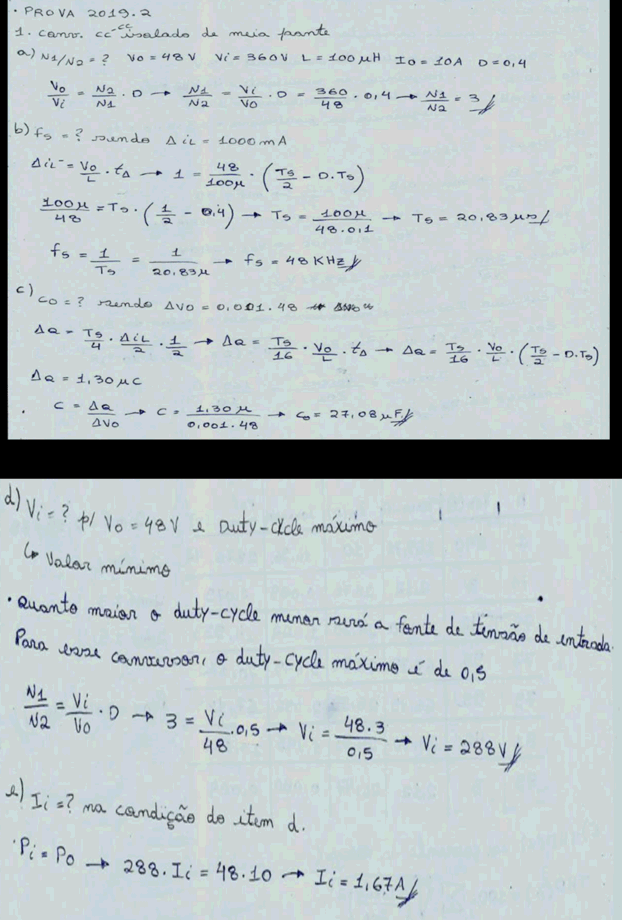 • PROVA 2019.2
1. conv. cc-cc isolado de meia ponte
a) N1/N2 = ? Vo = 48V Vi = 360V L = 100μH Io = 10A D = 0,4
Vo/Vi = N2/N1 · D → N1/N2 = Vi/Vo · D = 360/48 · 0,4 → N1/N2 = 3
b) fs = ? sendo ΔiL = 1000mA
ΔiL⁻ = Vo/L · tΔ → 1 = 48/100μ · (Ts/2 - D.Ts)
100μ/48 = Ts · (1/2 - 0,4) → Ts = 100μ/48.0,1 → Ts = 20,83μs
fs = 1/Ts = 1/20,83μ → fs = 48 KHz
c) Co = ? sendo ΔVo = 0,001.48
ΔQ = Ts/4 · ΔiL/2 · 1/2 → ΔQ = Ts/16 · Vo/L · tΔ → ΔQ = Ts/16 · Vo/L · (Ts/2 - D.Ts)
ΔQ = 1,30μC
C = ΔQ/ΔVo → C = 1,30μ/0,001.48 → Co = 27,08μF
d) Vi = ? p/ Vo = 48V e Duty-cycle máximo
↳ Valor mínimo
• Quanto maior o duty-cycle menor será a fonte de tensão de entrada.
Para esse conversor, o duty-cycle máximo é de 0,5
N1/N2 = Vi/Vo · D → 3 = Vi/48 · 0,5 → Vi = 48.3/0,5 → Vi = 288V
e) Ii = ? na condição do item d.
• Pi = Po → 288.Ii = 48.10 → Ii = 1,67A